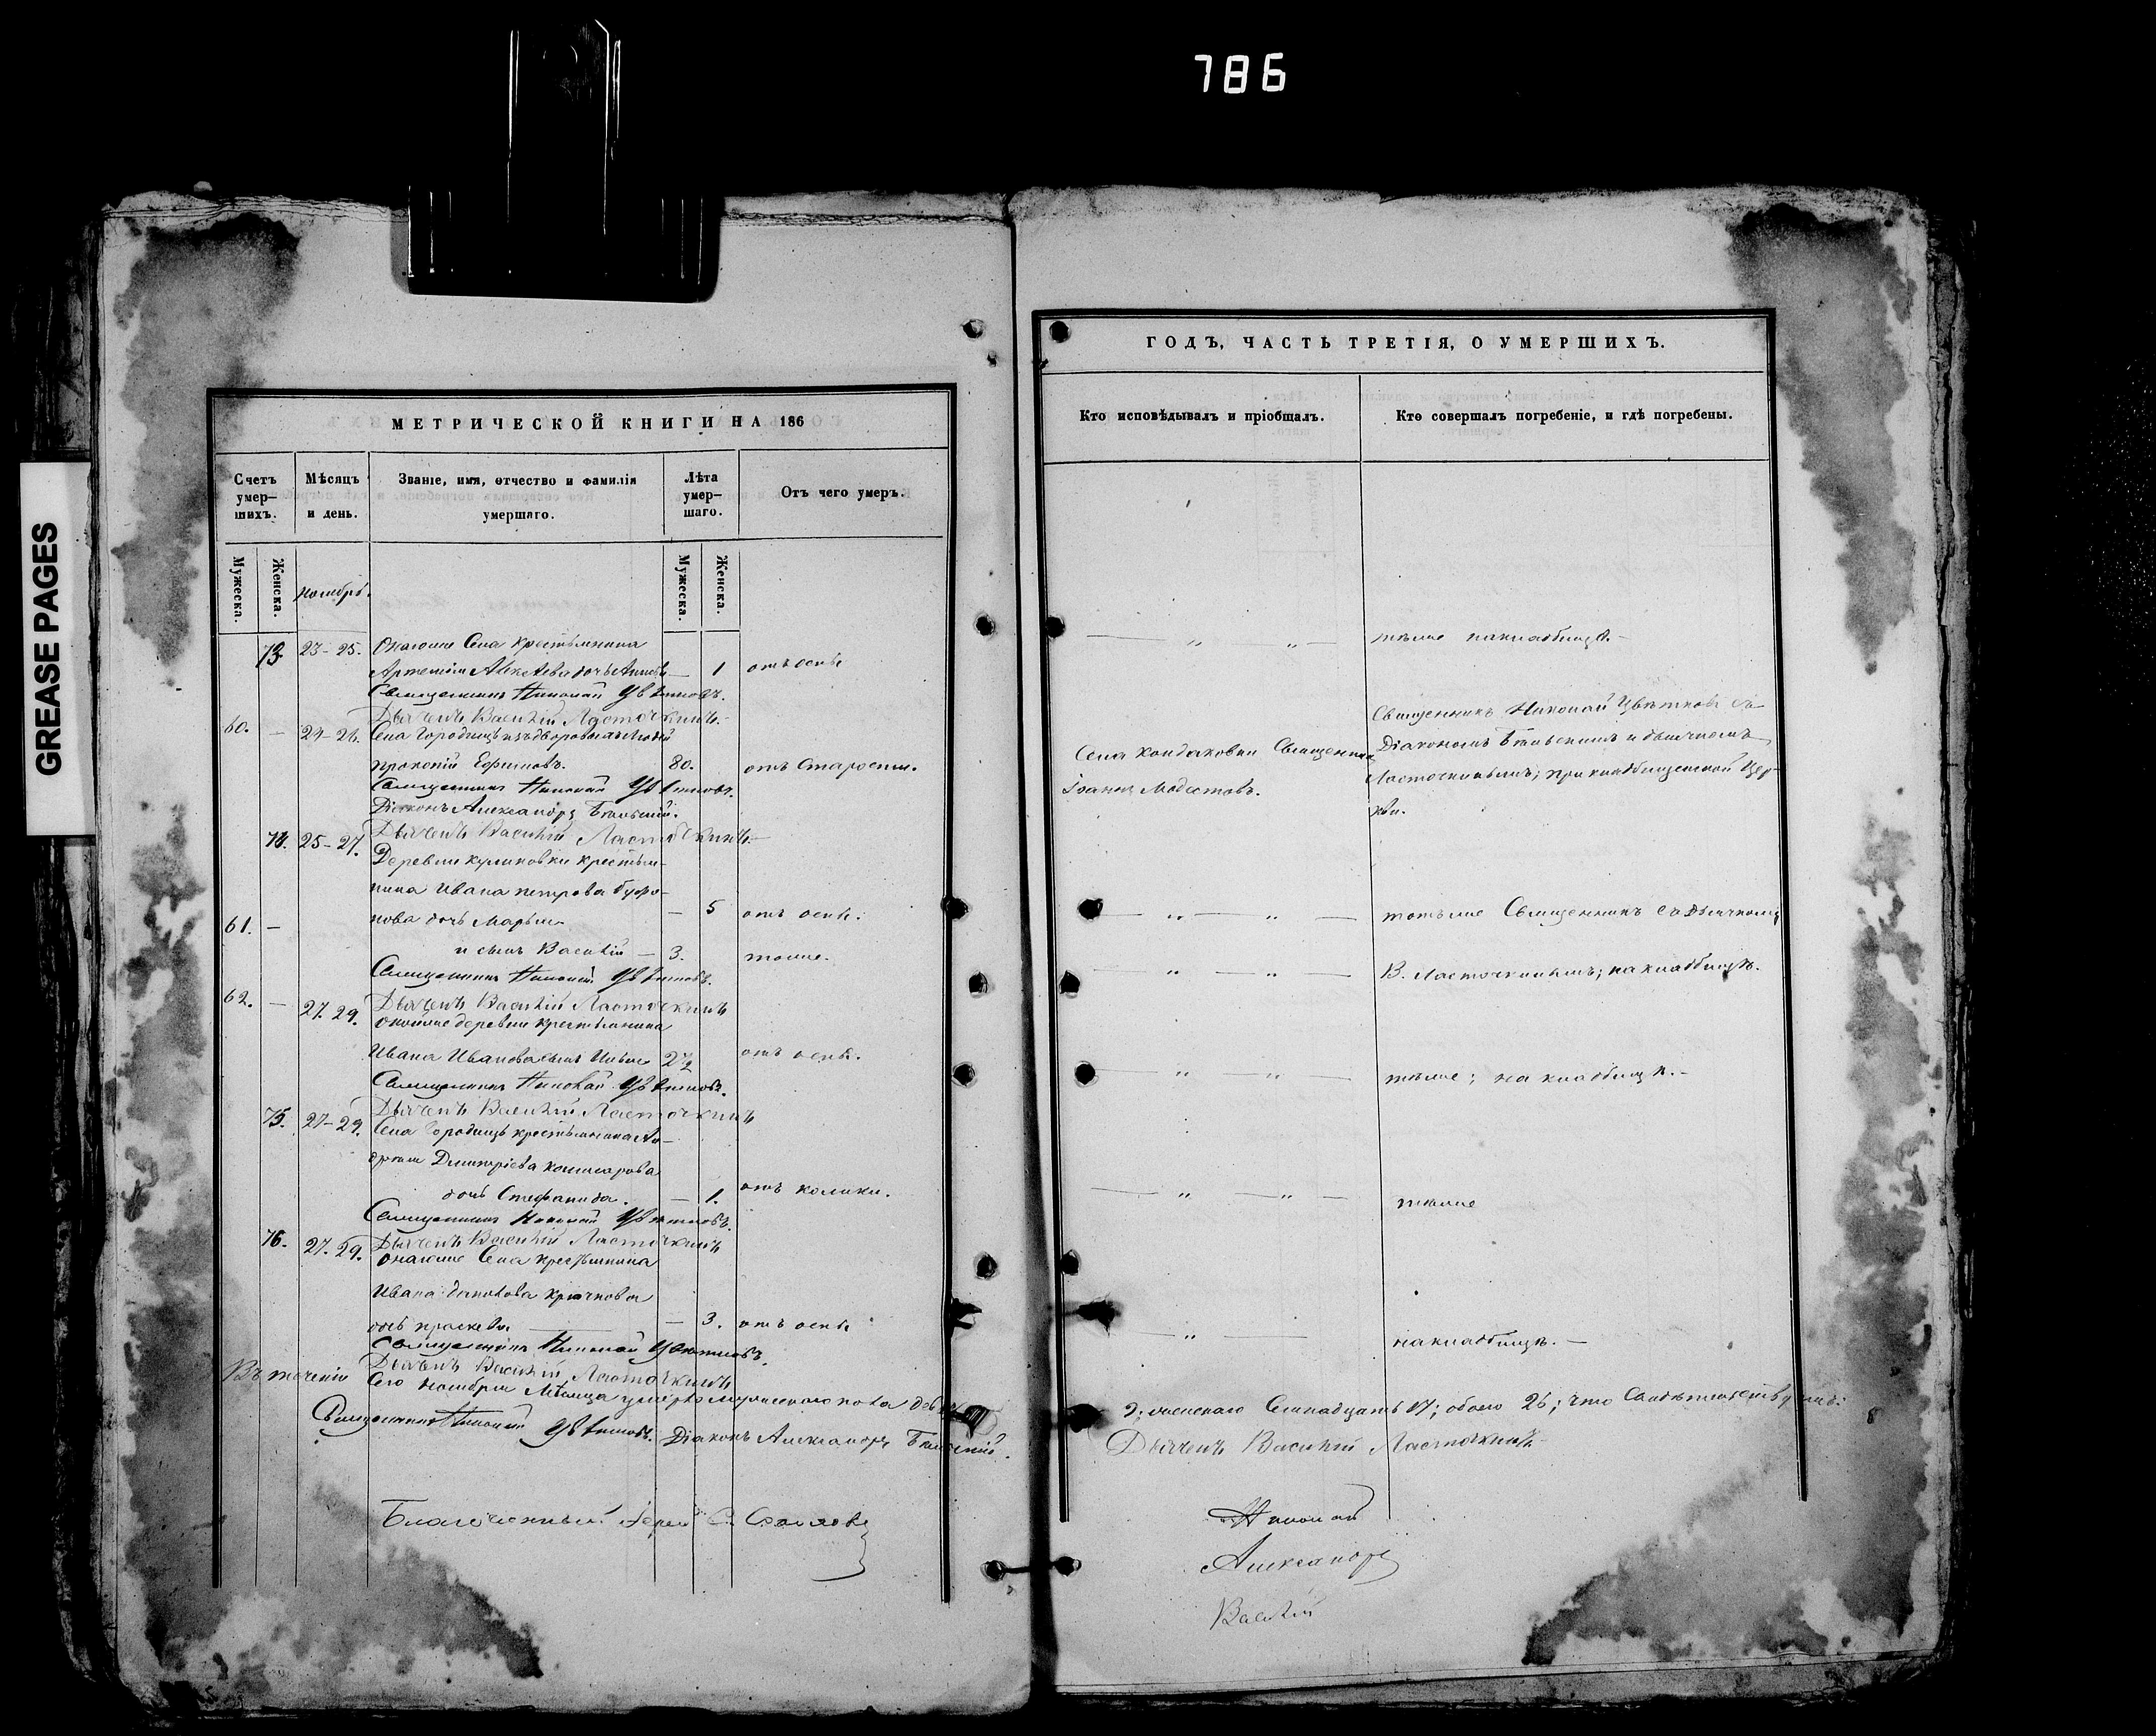 786
GREASE PAGES
МЕТРИЧЕСКОЙ КНИГИ НА 186
Счетъ умер-шихъ.
Мѣсяцъ и день.
Званіе, имя, отчество и фамилія умершаго.
Лѣта умер-шаго.
Отъ чего умеръ.
Мужеска.
Женска.
Ноябрь.
Мужеска.
Женска.
73. 23-25. Онагоже Села крестьянина
Артемія Алексѣева дочь — 1 отъ оспы
Священникъ Николай Цвѣтковъ.
Дьячекъ Василій Ласточкинъ.
60. — 24-26. Села Городищъ изъ дворовыхъ людей
Прокопій Ефимовъ. 80. отъ старости.
Священникъ Николай Цвѣтковъ.
Діаконъ Александръ
74. 25-27. Дьячекъ Василій Ласточкинъ
Деревни Куликовки крестья-
нина Ивана Петрова
нова дочь Марья — 5 отъ оспы.
61. —
и сынъ Василій — 3. тоже.
Священникъ Николай Цвѣтковъ.
62. — 27. 29. Дьячекъ Василій Ласточкинъ
оной же деревни крестьянина
Ивана Иванова сынъ 2½ отъ оспы.
Священникъ Николай Цвѣтковъ.
Дьячекъ Василій Ласточкинъ
75. 27-29. Села Городищъ крестьянина Ан-
дрея Дмитріева Комисарова
дочь Стефанида. — 1. отъ колики.
Священникъ Николай Цвѣтковъ.
76. 27. 29. Дьячекъ Василій Ласточкинъ
онагоже Села крестьянина
Ивана Крючкова
дочь Праскева — 3. отъ оспы
Священникъ Николай Цвѣтковъ.
Дьячекъ Василій Ласточкинъ
Въ теченіи сего Ноября Мѣсяца умерло мужескаго пола девять
Священникъ Николай Цвѣтковъ. Діаконъ Александръ
Благочинный Іерей С.
ГОДЪ, ЧАСТЬ ТРЕТІЯ, О УМЕРШИХЪ.
Кто исповѣдывалъ и пріобщалъ.
Кто совершалъ погребеніе, и гдѣ погребены.
— „ „ — тѣже на кладбищѣ. —
Священникъ Николай Цвѣтковъ съ
Села Кондаковки Священникъ Діакономъ и дьячкомъ
Іоаннъ Модестовъ. Ласточкинымъ; при кладбищенской Цер-
кви.
— „ — „ — тотъже Священникъ съ дьячкомъ
— „ — „ — В. Ласточкинымъ; на кладбищѣ.
— „ — „ — тѣже; на кладбищѣ. —
— „ — „ — тѣже
— „ — на кладбищѣ. —
9; женскаго Семнадцать 17; обоего 26; что свидѣтельствуемъ:
Дьячекъ Василій Ласточкинъ
Николай
Александръ
Василій